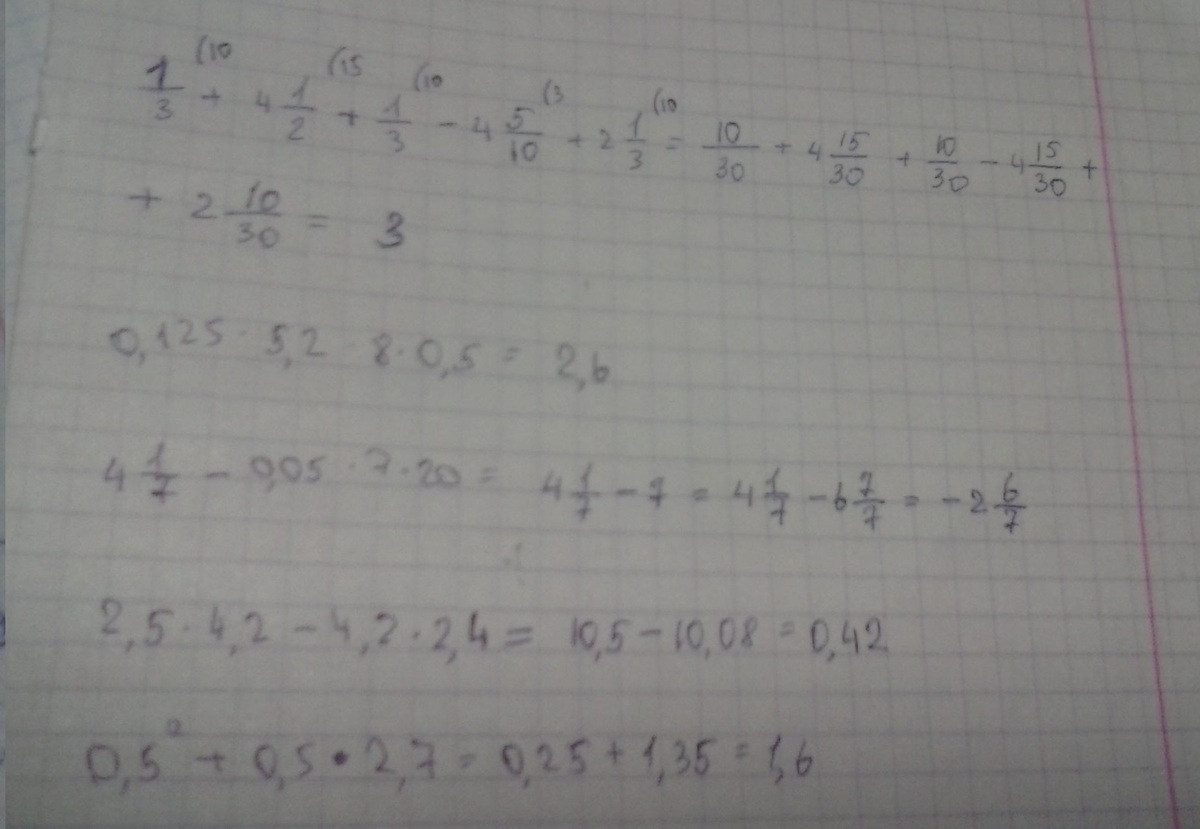 1/3 (10 + 4 1/2 (15 + 1/3 (10 - 4 5/10 (3 + 2 1/3 (10 = 10/30 + 4 15/30 + 10/30 - 4 15/30 +
+ 2 10/30 = 3
0,125 · 5,2 · 8 · 0,5 = 2,6
4 1/7 - 0,05 · 7 · 20 = 4 1/7 - 7 = 4 1/7 - 6 7/7 = - 2 6/7
2,5 · 4,2 - 4,2 · 2,4 = 10,5 - 10,08 = 0,42
0,5² + 0,5 · 2,7 = 0,25 + 1,35 = 1,6